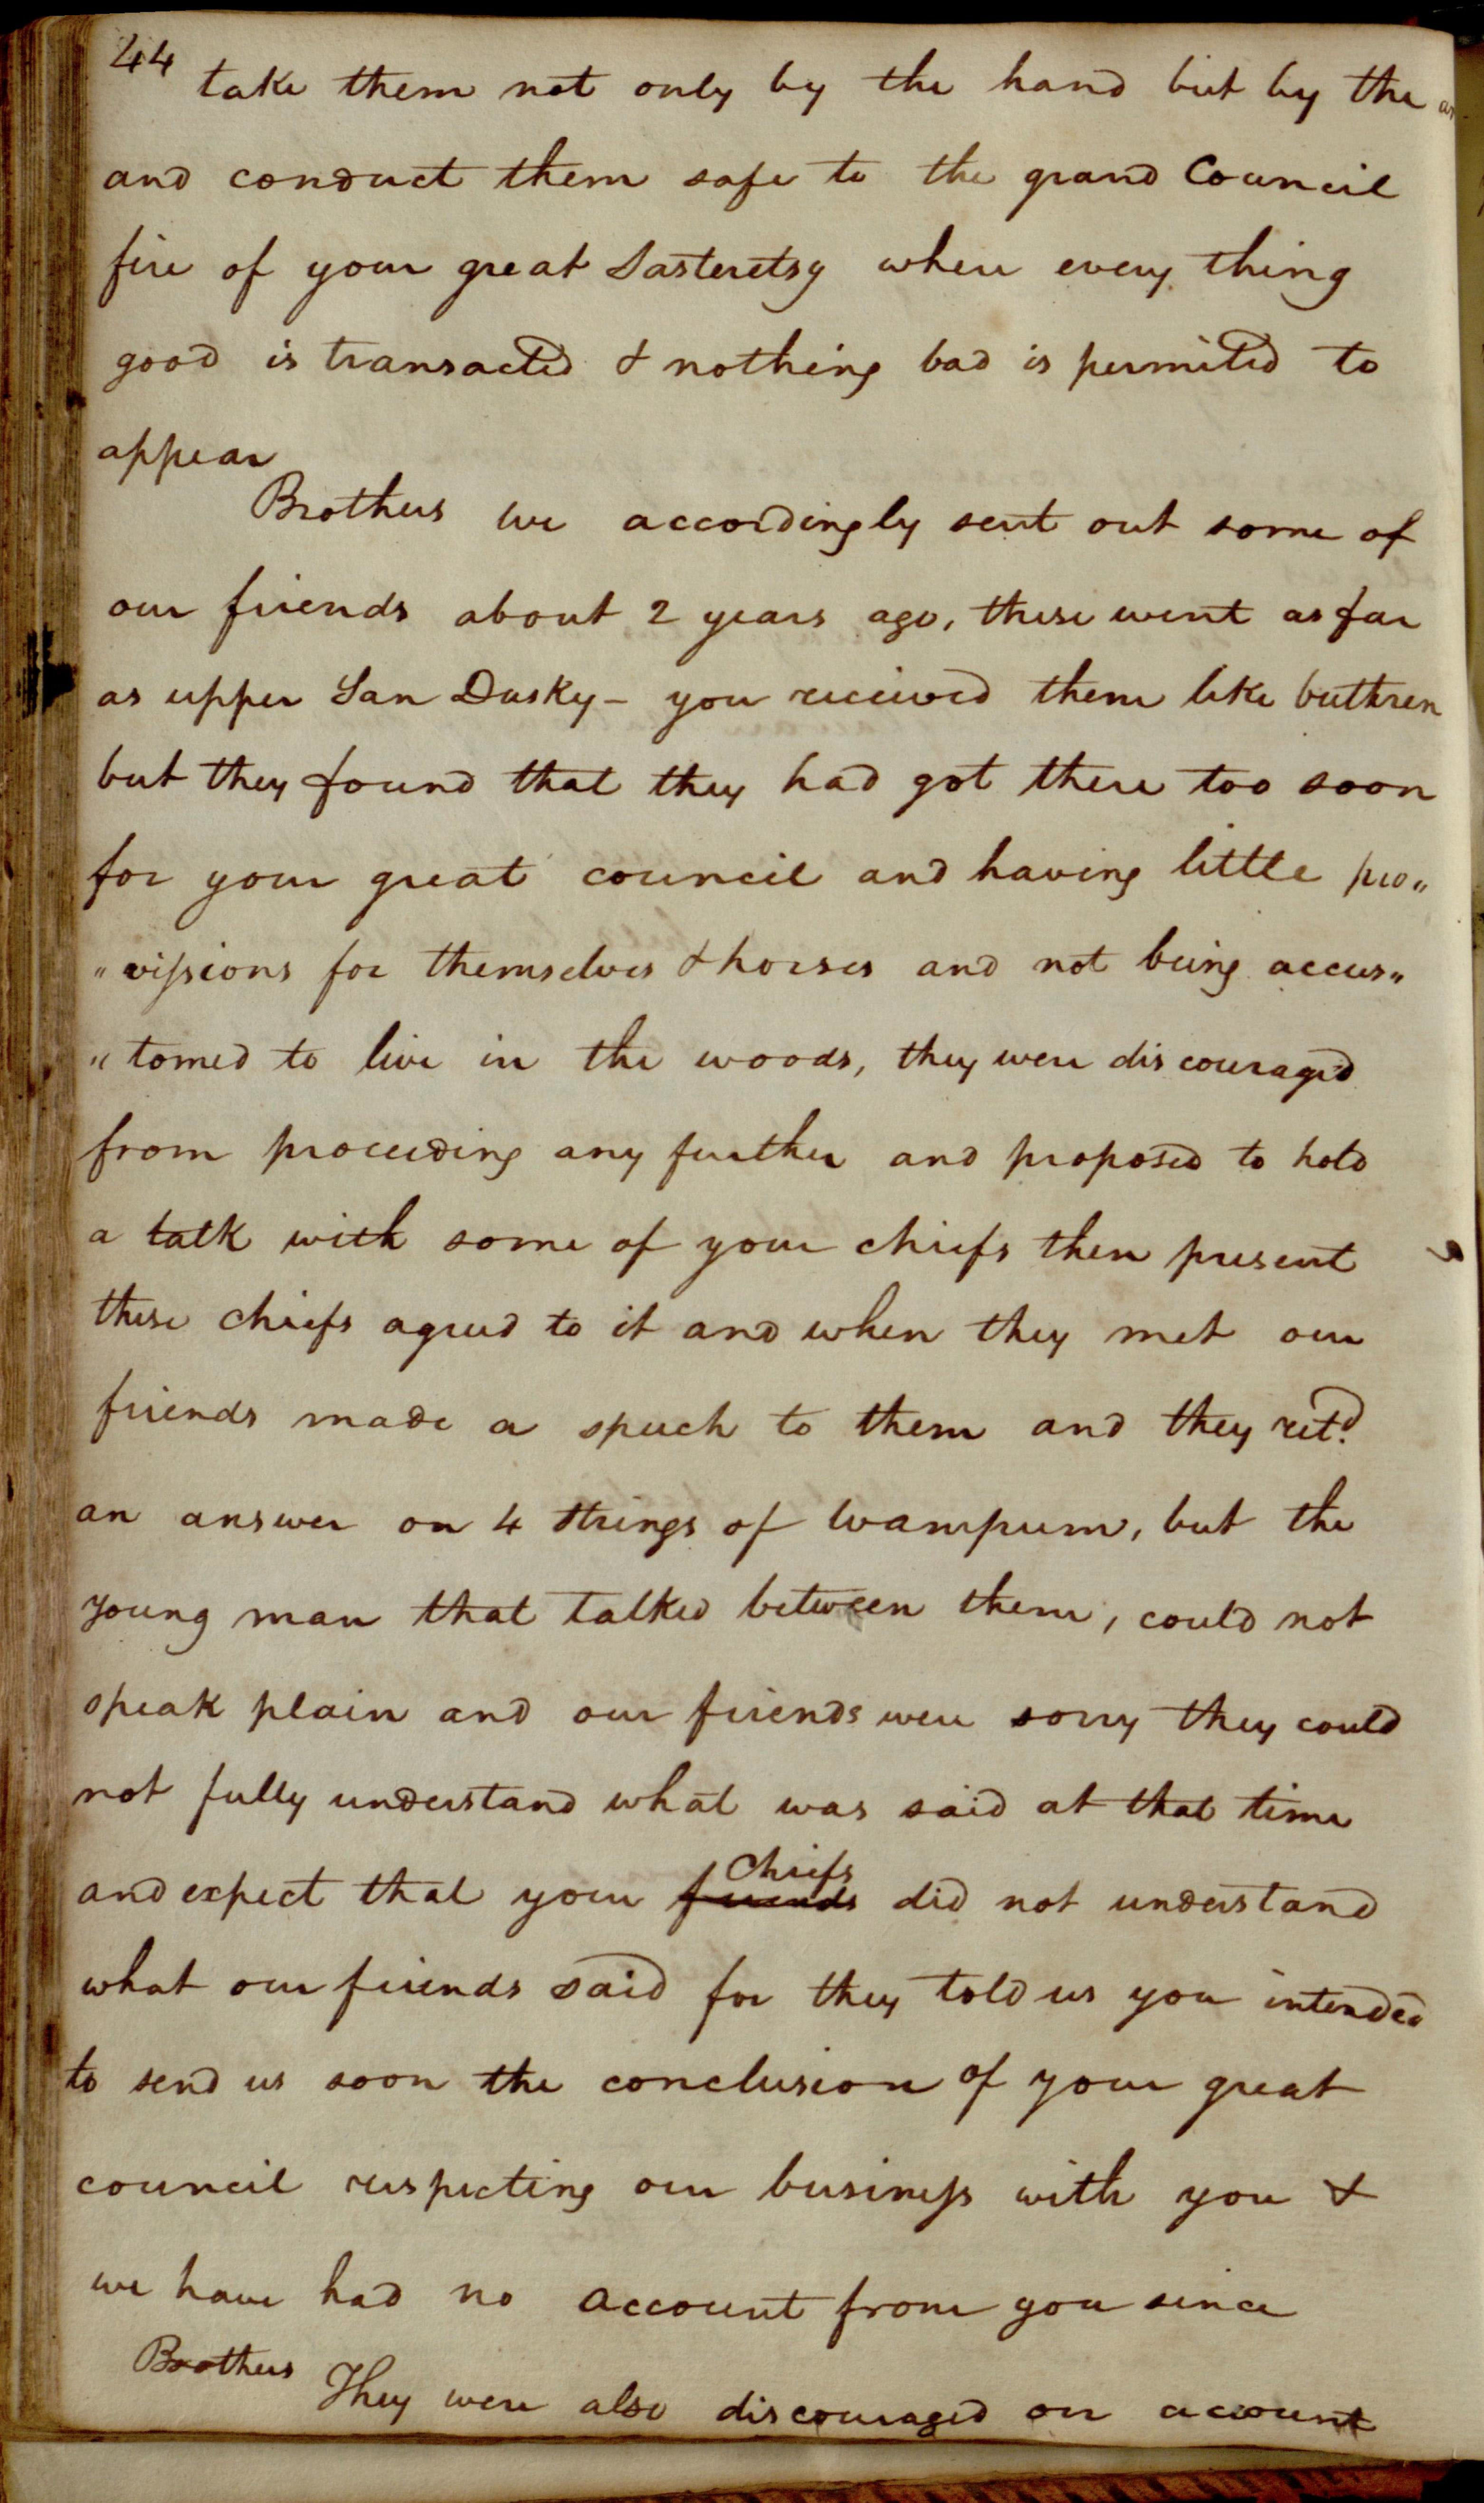 44
take them not only by the hand but by the
and conduct them safe to the grand Council
fire of your great Sasteretsy where every thing
good is transacted & nothing bad is permited to
appear
Brothers we accordingly sent out some of
our friends about 2 years ago, these went as far
as upper San Dusky – you received them like buthren
but they found that they had got there too soon
for your great council and having little pro„
„vissions for themselves & horses and not being accus„
„tomed to live in the woods, they were discouraged
from proceeding any further and proposed to hold
a talk with some of your chiefs then present
these chiefs agreed to it and when they met our
friends made a speech to them and they retd.
an answer on 4 strings of Wampum, but the
young man that talked between them, could not
speak plain and our friends were sorry they could
not fully understand what was said at that time
Chiefs
and expect that your friends did not understand
what our friends said for they told us you intended
to send us soon the conclusion of your great
council respecting our business with you &
we have had no account from you since
Brothers They were also discouraged on account